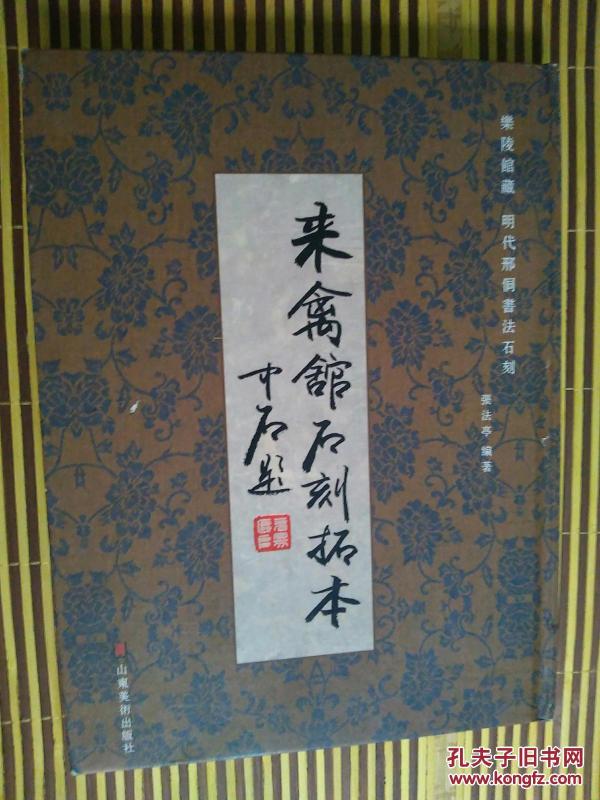 樂陵館藏 明代邢侗書法石刻
張法亭 編著
来禽館石刻拓本
中石題
山東美術出版社
孔夫子旧书网
www.kongfz.com